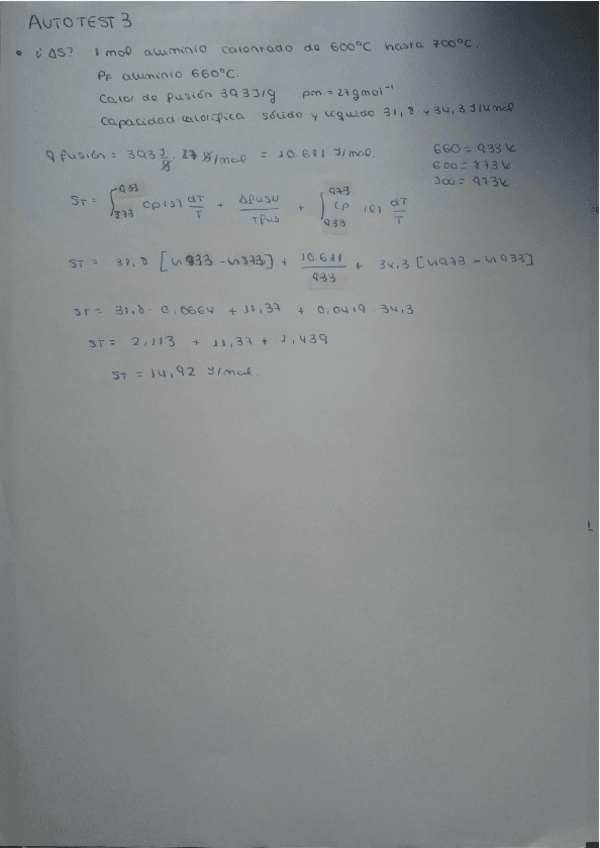 AUTOTEST 3
• ¿ΔS? 1 mol aluminio calentado de 600°C hasta 700°C.
PF aluminio 660°C.
Calor de fusión 393 J/g pm = 27 g mol⁻¹
Capacidad calorífica sólido y líquido 31,8 y 34,3 J/K mol
q fusión = 393 J/g · 27 g/mol = 10.611 J/mol.
660 = 933 K
600 = 873 K
700 = 973 K
ST = ∫₈₇₃⁹³³ Cp(s) dT/T + ΔfusH/Tfus + ∫₉₃₃⁹⁷³ Cp (l) dT/T
ST = 31,8 [ln 933 - ln 873] + 10.611/933 + 34,3 [ln 973 - ln 933]
ST = 31,8 · 0,0664 + 11,37 + 0,0419 · 34,3
ST = 2,113 + 11,37 + 1,439
ST = 14,92 J/mol.